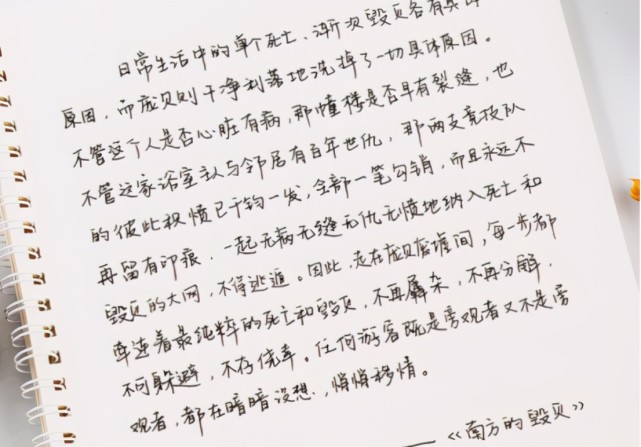 日常生活中的单个死亡、渐次毁灭各有具体
原因，而庞贝则干净利落地洗掉了一切具体原因。
不管这个人是否心脏有病，那幢楼是否早有裂缝，也
不管这家浴室主人与邻居有百年世仇，那两支竞技队
的彼此积愤已千钧一发，全部一笔勾销，而且永远不
再留有印痕，一起无病无缝无仇无愤地纳入死亡和
毁灭的大网，不得逃遁。因此，走在庞贝废墟间，每一步都
牵连着最纯粹的死亡和毁灭，不再羼杂，不再分解，
不问躲避，不存侥幸。任何游客既是旁观者又不是旁
观者，都在暗暗设想，悄悄移情。
——《南方的毁灭》